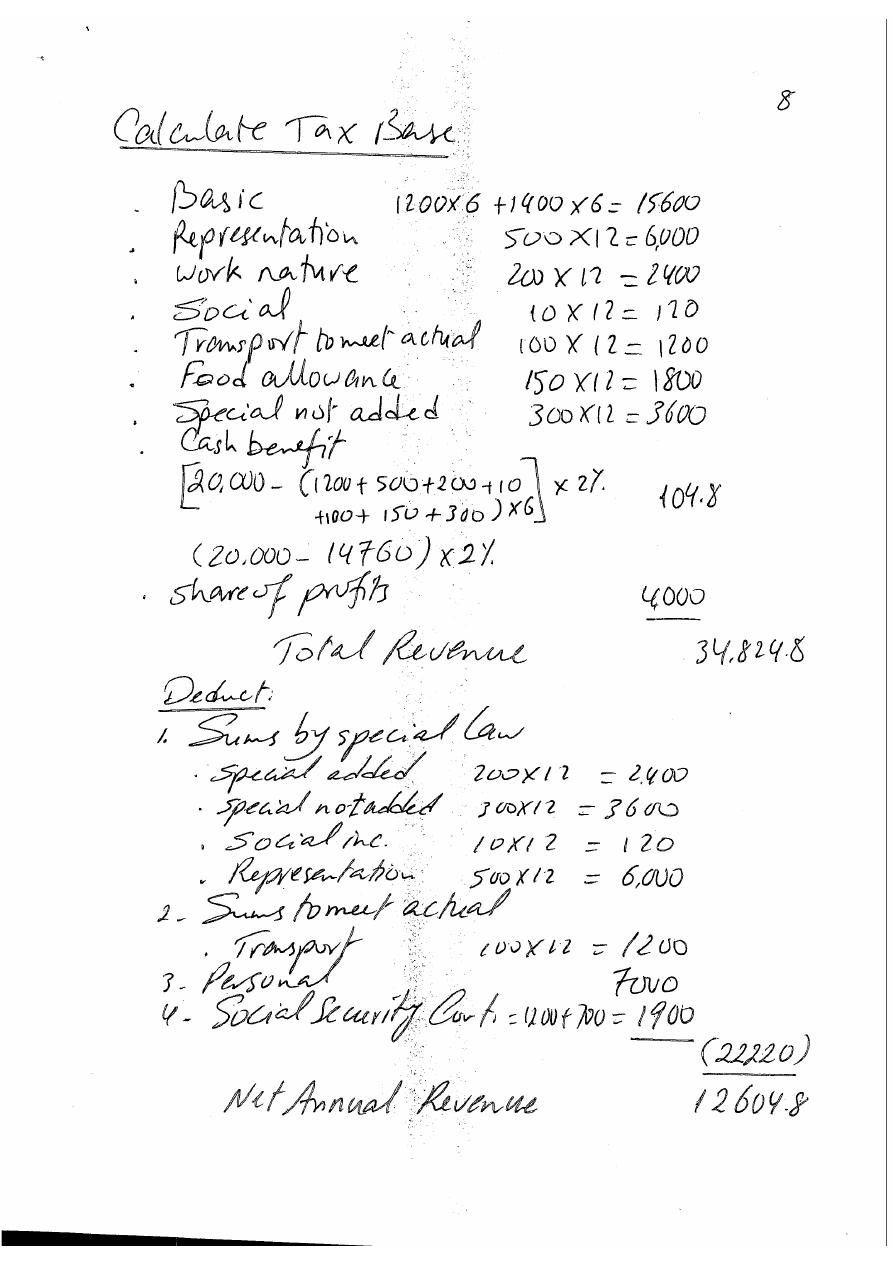 8
Calculate Tax Base
. Basic 1200x6 +1400x6= 15600
. Representation 500x12=6,000
. Work nature 200x12 =2400
. Social 10x12= 120
. Transport to meet actual 100x12= 1200
. Food allowance 150x12= 1800
. Special not added 300x12=3600
. Cash benefit
[20,000- (1200+500+200+10
+100+ 150+300)x6] x 2% 104.8
(20.000- 14760)x2%
. share of profits 4000
Total Revenue 34,824.8
Deduct:
1. Sums by special law
. special added 200x12 = 2.400
. special not added 300x12 =3600
. Social inc. 10x12 = 120
. Representation 500x12 = 6,000
2- Sums to meet actual
. Transport 100x12 =1200
3- Personal 7000
4- Social Security Cont. =1200+700=1900
(22220)
Net Annual Revenue 12604.8